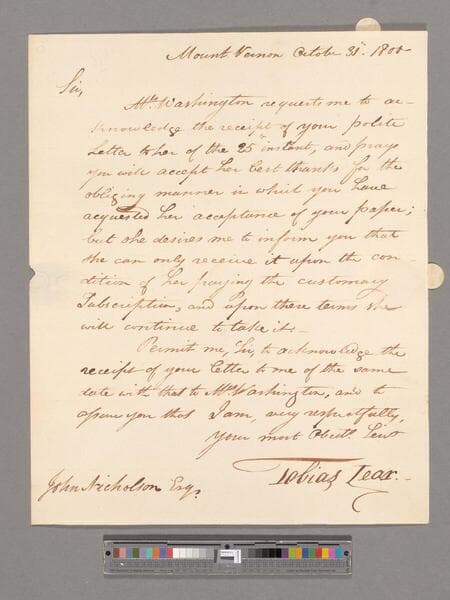 Mount Vernon October 31st 1800
Sir,
Mrs. Washington requests me to ac-
knowledge the receipt of your polite
Letter to her of the 25th instant, and prays
you will accept her best thanks for the
obliging manner in which you have
requested her acceptance of your paper;
but she desires me to inform you that
she can only receive it upon the con-
dition of her paying the customary
Subscription, and upon these terms she
will continue to take it.
Permit me, Sir, to acknowledge the
receipt of your letter to me of the same
date with that to Mrs. Washington, and to
assure you that I am, very respectfully,
Your most Obedt. Servt
Tobias Lear.
John Nicholson Esqr.